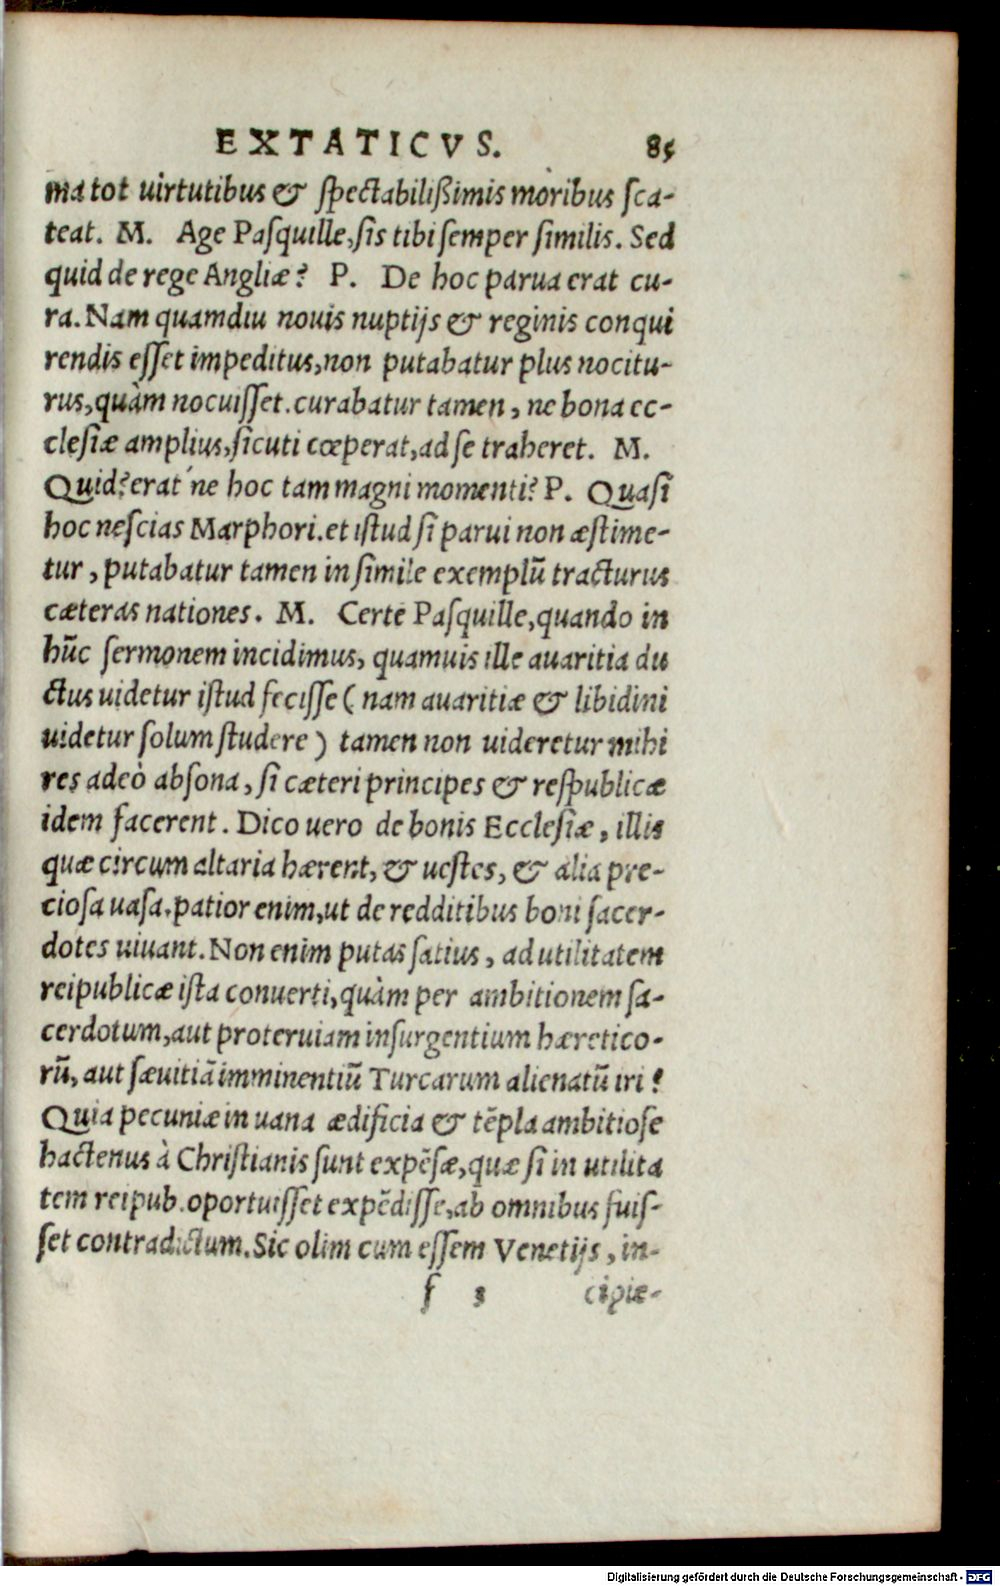 EXTATICVS. 85
ma tot uirtutibus & ſpectabilißimis moribus ſca-
teat. M. Age Paſquille, ſis tibi ſemper ſimilis. Sed
quid de rege Angliæ? P. De hoc parua erat cu-
ra. Nam quamdiu nouis nuptijs & reginis conqui
rendis eſſet impeditus, non putabatur plus nocitu-
rus, quàm nocuiſſet. curabatur tamen, ne bona ec-
cleſiæ amplius, ſicuti cœperat, ad ſe traheret. M.
Quid? erat´ne hoc tam magni momenti? P. Quaſi
hoc neſcias Marphori. et iſtud ſi parui non æſtime-
tur, putabatur tamen in ſimile exemplũ tracturus
cæteras nationes. M. Certè Paſquille, quando in
hũc ſermonem incidimus, quamuis ille auaritia du
ctus uidetur iſtud feciſſe (nam auaritiæ & libidini
uidetur ſolum ſtudere) tamen non uideretur mihi
res adeò abſona, ſi cæteri principes & reſpublicæ
idem facerent. Dico uero de bonis Eccleſiæ, illis
quæ circum altaria hærent, & ueſtes, & alia pre-
cioſa uaſa. patior enim, ut de redditibus boni ſacer-
dotes uiuant. Non enim putas ſatius, ad utilitatem
reipublicæ iſta conuerti, quàm per ambitionem ſa-
cerdotum, aut proteruiam inſurgentium hæretico-
rũ, aut ſæuitiã imminentiũ Turcarum alienatũ iri?
Quia pecuniæ in uana ædificia & tẽpla ambitioſe
hactenus à Chriſtianis ſunt expẽſæ, quæ ſi in utilita
tem reipub. oportuiſſet expẽdiſſe, ab omnibus fuiſ-
ſet contradictum. Sic olim cum eſſem Venetijs, in-
f 3 cipie-
Digitalisierung gefördert durch die Deutsche Forschungsgemeinschaft - DFG